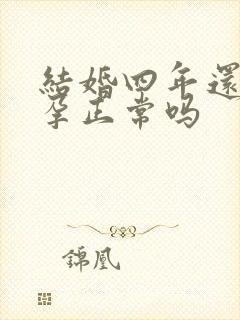 結婚四年還
孕正常吗
錦凰